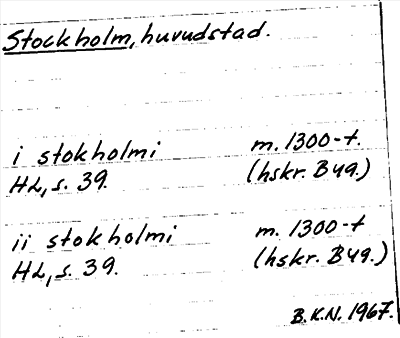 Stockholm, huvudstad.
i stokholmi m. 1300-t.
HL, s. 39. (hskr. B49.)
ii stokholmi m. 1300-t
HL, s. 39. (hskr. B49.)
B.K.N. 1967.